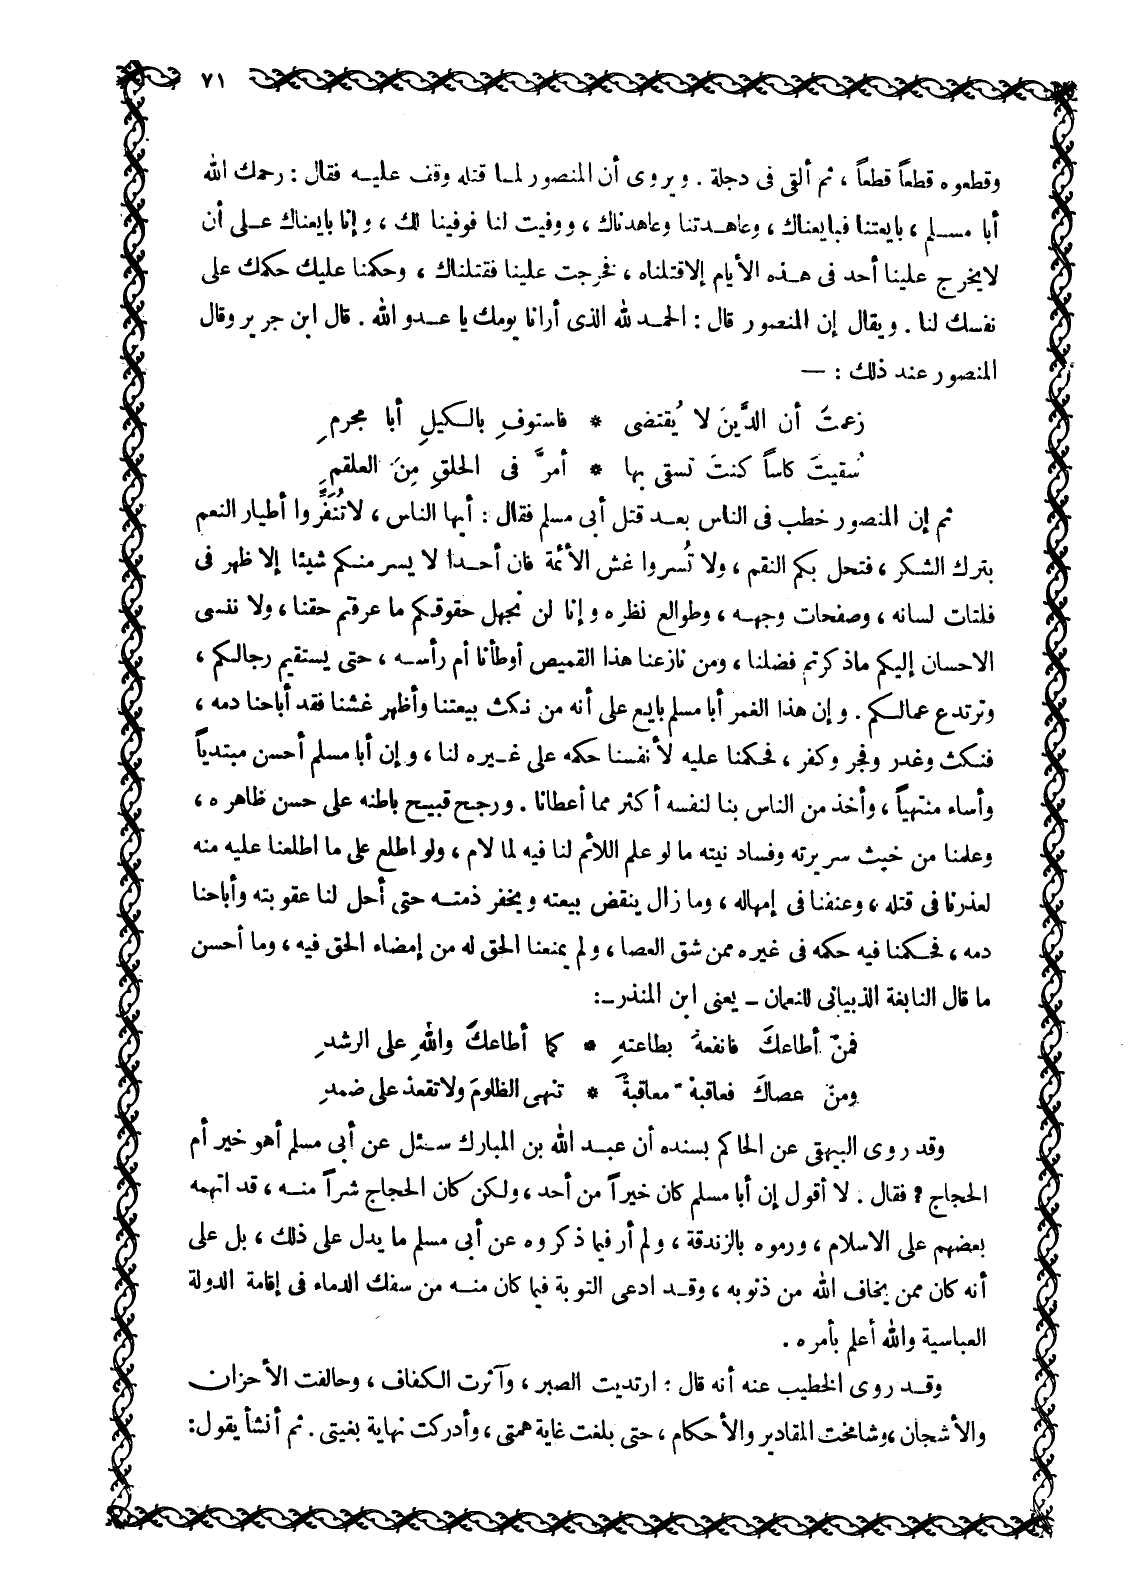 ٧١
وقطعوه قطعاً قطعاً ، ثم ألقى فى دجلة . ويروى أن المنصور لما قتله وقف عليه فقال : رحمك الله
أبا مسلم ، بايعتنا فبايعناك ، وعاهدتنا وعاهدناك ، ووفيت لنا فوفينا لك ، وإنا بايعناك على أن
لايخرج علينا أحد فى هذه الأيام إلاقتلناه ، فخرجت علينا فقتلناك ، وحكمنا عليك حكمك على
نفسك لنا . ويقال إن المنصور قال : الحمد لله الذى أرانا يومك يا عدو الله . قال ابن جرير وقال
المنصور عند ذلك : —
زعمتَ أن الدَّينَ لا يُقتضى * فاستوفِ بالكيلِ أبا مجرمِ
سُقيتَ كاساً كنتَ تسقى بها * أمرَّ فى الحلقِ مِنَ العلقمِ
ثم إن المنصور خطب فى الناس بعد قتل أبى مسلم فقال : أيها الناس ، لاتُنَفِّروا أطيار النعم
بترك الشكر ، فتحل بكم النقم ، ولا تُسروا غش الأئمة فان أحدا لا يسر منكم شيئا إلا ظهر فى
فلتات لسانه ، وصفحات وجهه ، وطوالع نظره وإنا لن نجهل حقوقكم ما عرفتم حقنا ، ولا ننسى
الاحسان إليكم ماذكرتم فضلنا ، ومن نازعنا هذا القميص أوطأنا أم رأسه ، حتى يستقيم رجالكم ،
وترتدع عمالكم . وإن هذا الغمر أبا مسلم بايع على أنه من نكث بيعتنا وأظهر غشنا فقد أباحنا دمه ،
فنكث وغدر وفجر وكفر ، فحكمنا عليه لأنفسنا حكمه على غيره لنا ، وإن أبا مسلم أحسن مبتدياً
وأساء منتهياً ، وأخذ من الناس بنا لنفسه أكثر مما أعطانا . ورجح قبيح باطنه على حسن ظاهره ،
وعلمنا من خبث سريرته وفساد نيته ما لو علم اللائم لنا فيه لما لام ، ولو اطلع على ما اطلعنا عليه منه
لعذرنا فى قتله ، وعنفنا فى إمهاله ، وما زال ينقض بيعته ويخفر ذمته حتى أحل لنا عقوبته وأباحنا
دمه ، فحكمنا فيه حكمه فى غيره ممن شق العصا ، ولم يمنعنا الحق له من إمضاء الحق فيه ، وما أحسن
ما قال النابغة الذبيانى للنعمان ـ يعنى ابن المنذر ـ:
فمنْ أطاعكَ فانفعهُ بطاعتهِ * كما أطاعكَ واللهِ على الرشدِ
ومنْ عصاكَ فعاقبهُ معاقبةً * تنهى الظلومَ ولاتقعدْ على ضمدِ
وقد روى البيهقى عن الحاكم بسنده أن عبد الله بن المبارك سئل عن أبى مسلم أهو خير أم
الحجاج ؟ فقال . لا أقول إن أبا مسلم كان خيراً من أحد ، ولكن كان الحجاج شراً منه ، قد اتهمه
بعضهم على الاسلام ، ورموه بالزندقة ، ولم أر فيما ذكروه عن أبى مسلم ما يدل على ذلك ، بل على
أنه كان ممن يخاف الله من ذنوبه ، وقد ادعى التوبة فيما كان منه من سفك الدماء فى إقامة الدولة
العباسية والله أعلم بأمره .
وقد روى الخطيب عنه أنه قال : ارتديت الصبر ، وآثرت الكفاف ، وحالفت الأحزان
والأشجان ،وشامخت المقادير والأحكام ، حتى بلغت غاية همتى ، وأدركت نهاية بغيتى . ثم أنشأ يقول: